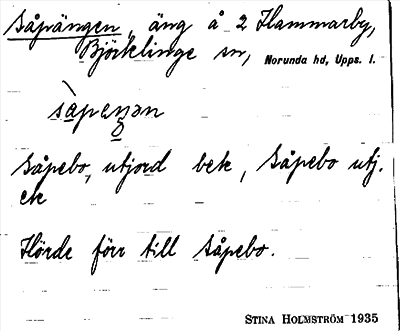 Såpängen, äng å 2 Hammarby,
Björklinge sn, Norunda hd, Upps. l.
såpeŋən
Såpebo, utjord bek, Såpebo utj.
ek
Hörde förr till Såpebo.
STINA HOLMSTRÖM 1935